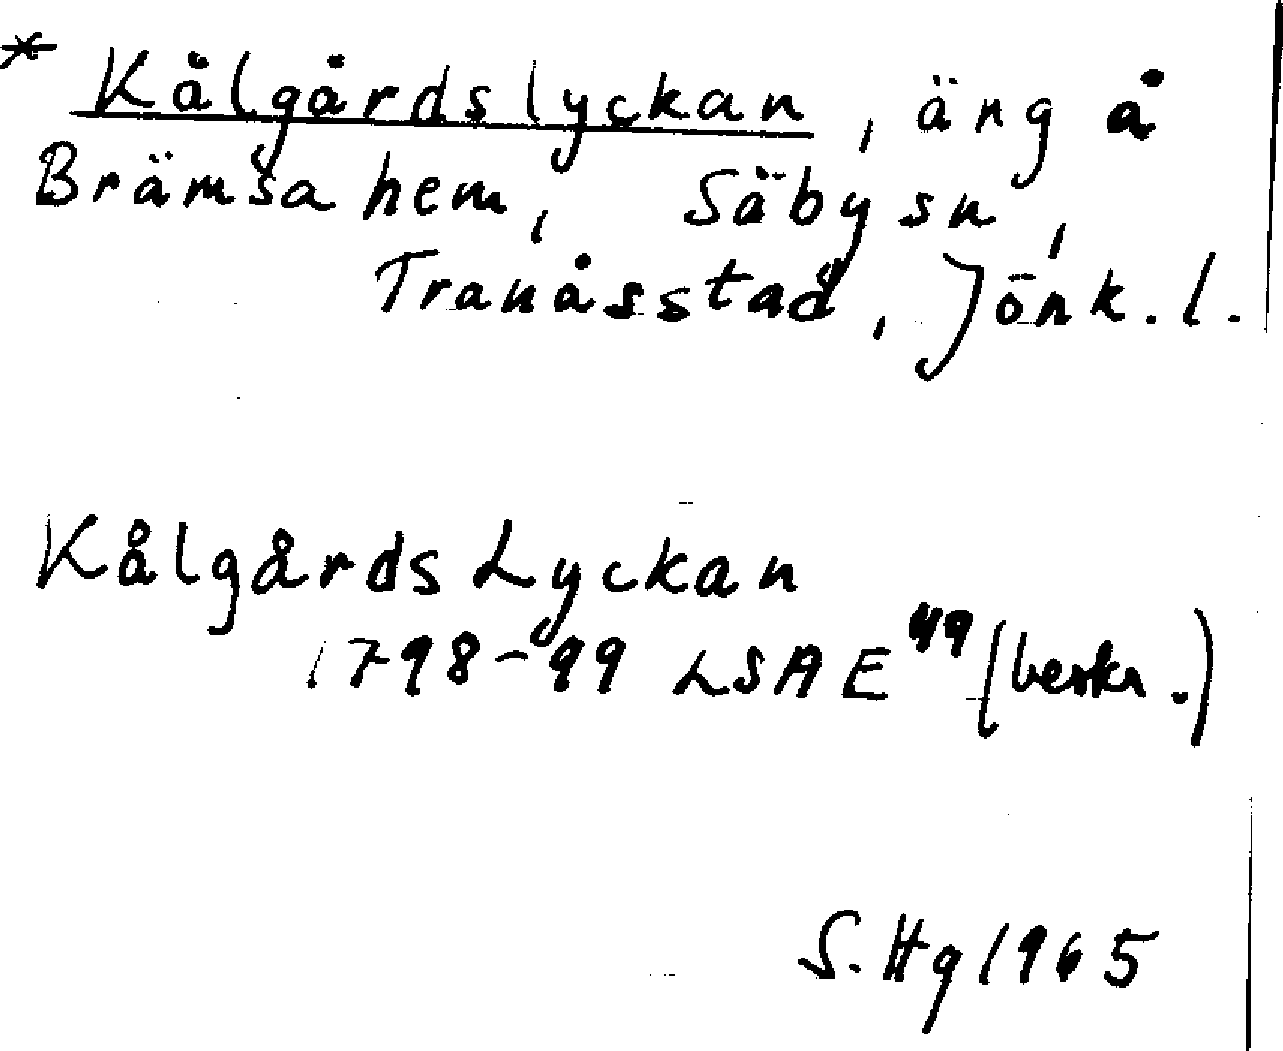 * Kålgårdslyckan, äng å
Brämsahem, Säby sn,
Tranås stad, Jönk. l.
Kålgårds Lyckan
1798-99 LSA E 49 (beskr.)
S. Hg 1965